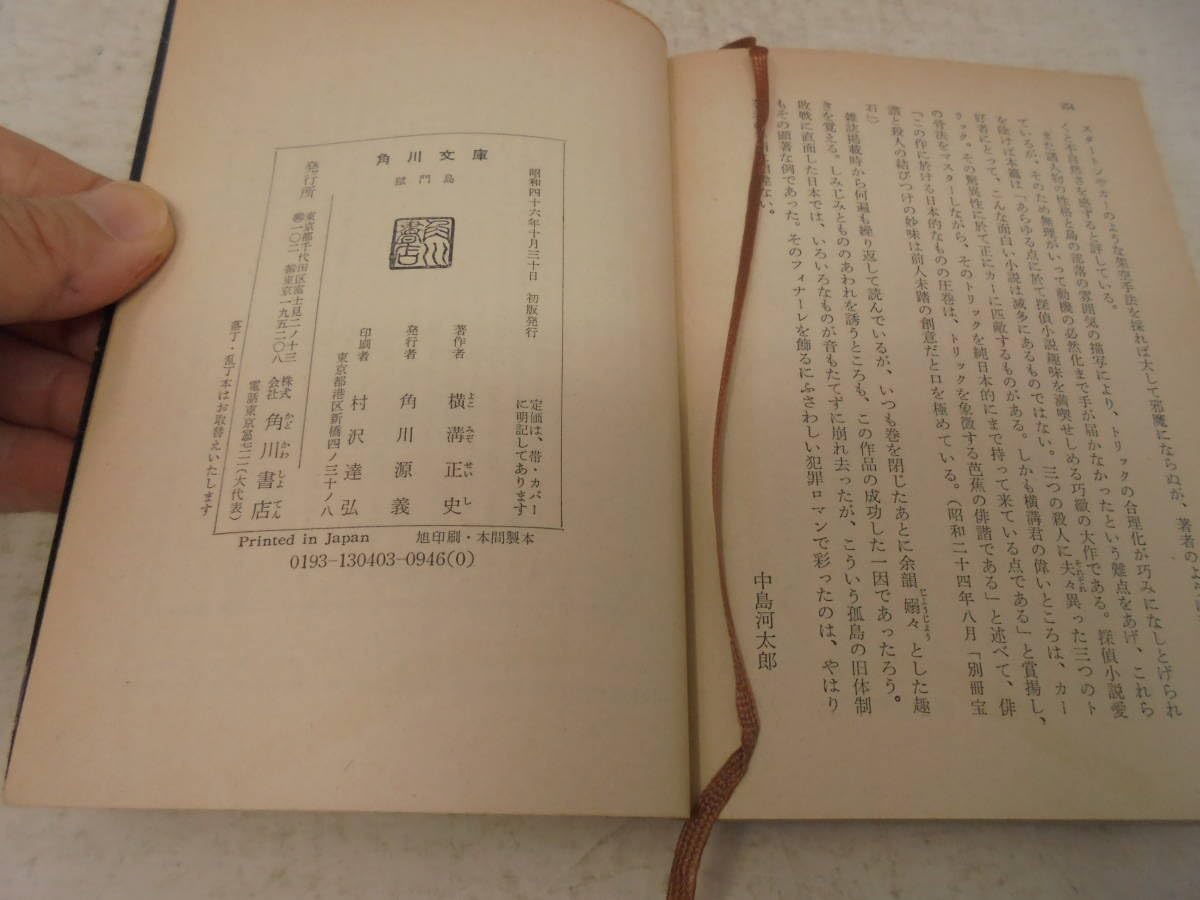 スタートンやカーのような架空手法を採れば大して邪魔にならぬが、著者のよう
々と不自然さを感ずると評している。
また諸人物の性格と島の部落の雰囲気の描写により、トリックの合理化が巧みになしとげられ
ているが、そのため無理がいって動機の必然化まで手が届かなかったという難点をあげ、これら
を除けば本篇は「あらゆる点に於て探偵小説趣味を満喫せしめる巧緻の大作である。探偵小説愛
好者にとって、こんな面白い小説は滅多にあるものではない。三つの殺人に夫々異った三つのト
リック。その驚異性に於て正にカーに匹敵するものがある。しかも横溝君の偉いところは、カー
の骨法をマスターしながら、そのトリックを純日本的にまで持って来ている点である」と賞揚し、
「この作に於ける日本的なものの圧巻は、トリックを象徴する芭蕉の俳諧である」と述べて、俳
諧と殺人の結びつけの妙味は前人未踏の創意だと口を極めている。（昭和二十四年八月「別冊宝
石」）
雑誌掲載時から何遍も繰り返して読んでいるが、いつも巻を閉じたあとに余韻嫋々とした趣
きを覚える。しみじみとものあわれを誘うところも、この作品の成功した一因であったろう。
敗戦に直面した日本では、いろいろなものが音もたてずに崩れ去ったが、こういう孤島の旧体制
もその顕著な例であった。そのフィナーレを飾るにふさわしい犯罪ロマンで彩ったのは、やはり
ない。
中島河太郎
角川文庫
獄門島
角川書店
昭和四十六年十月三十日 初版発行
定価は、帯・カバー
に明記してあります
著作者 横溝正史
発行者 角川源義
印刷者 村沢達弘
東京都港区新橋四ノ三十ノ八
発行所 株式会社 角川書店
東京都千代田区富士見二ノ十三
〒一〇二 振替東京一九五二〇八
落丁・乱丁本はお取替えいたします
Printed in Japan 旭印刷・本間製本
0193-130403-0946(0)